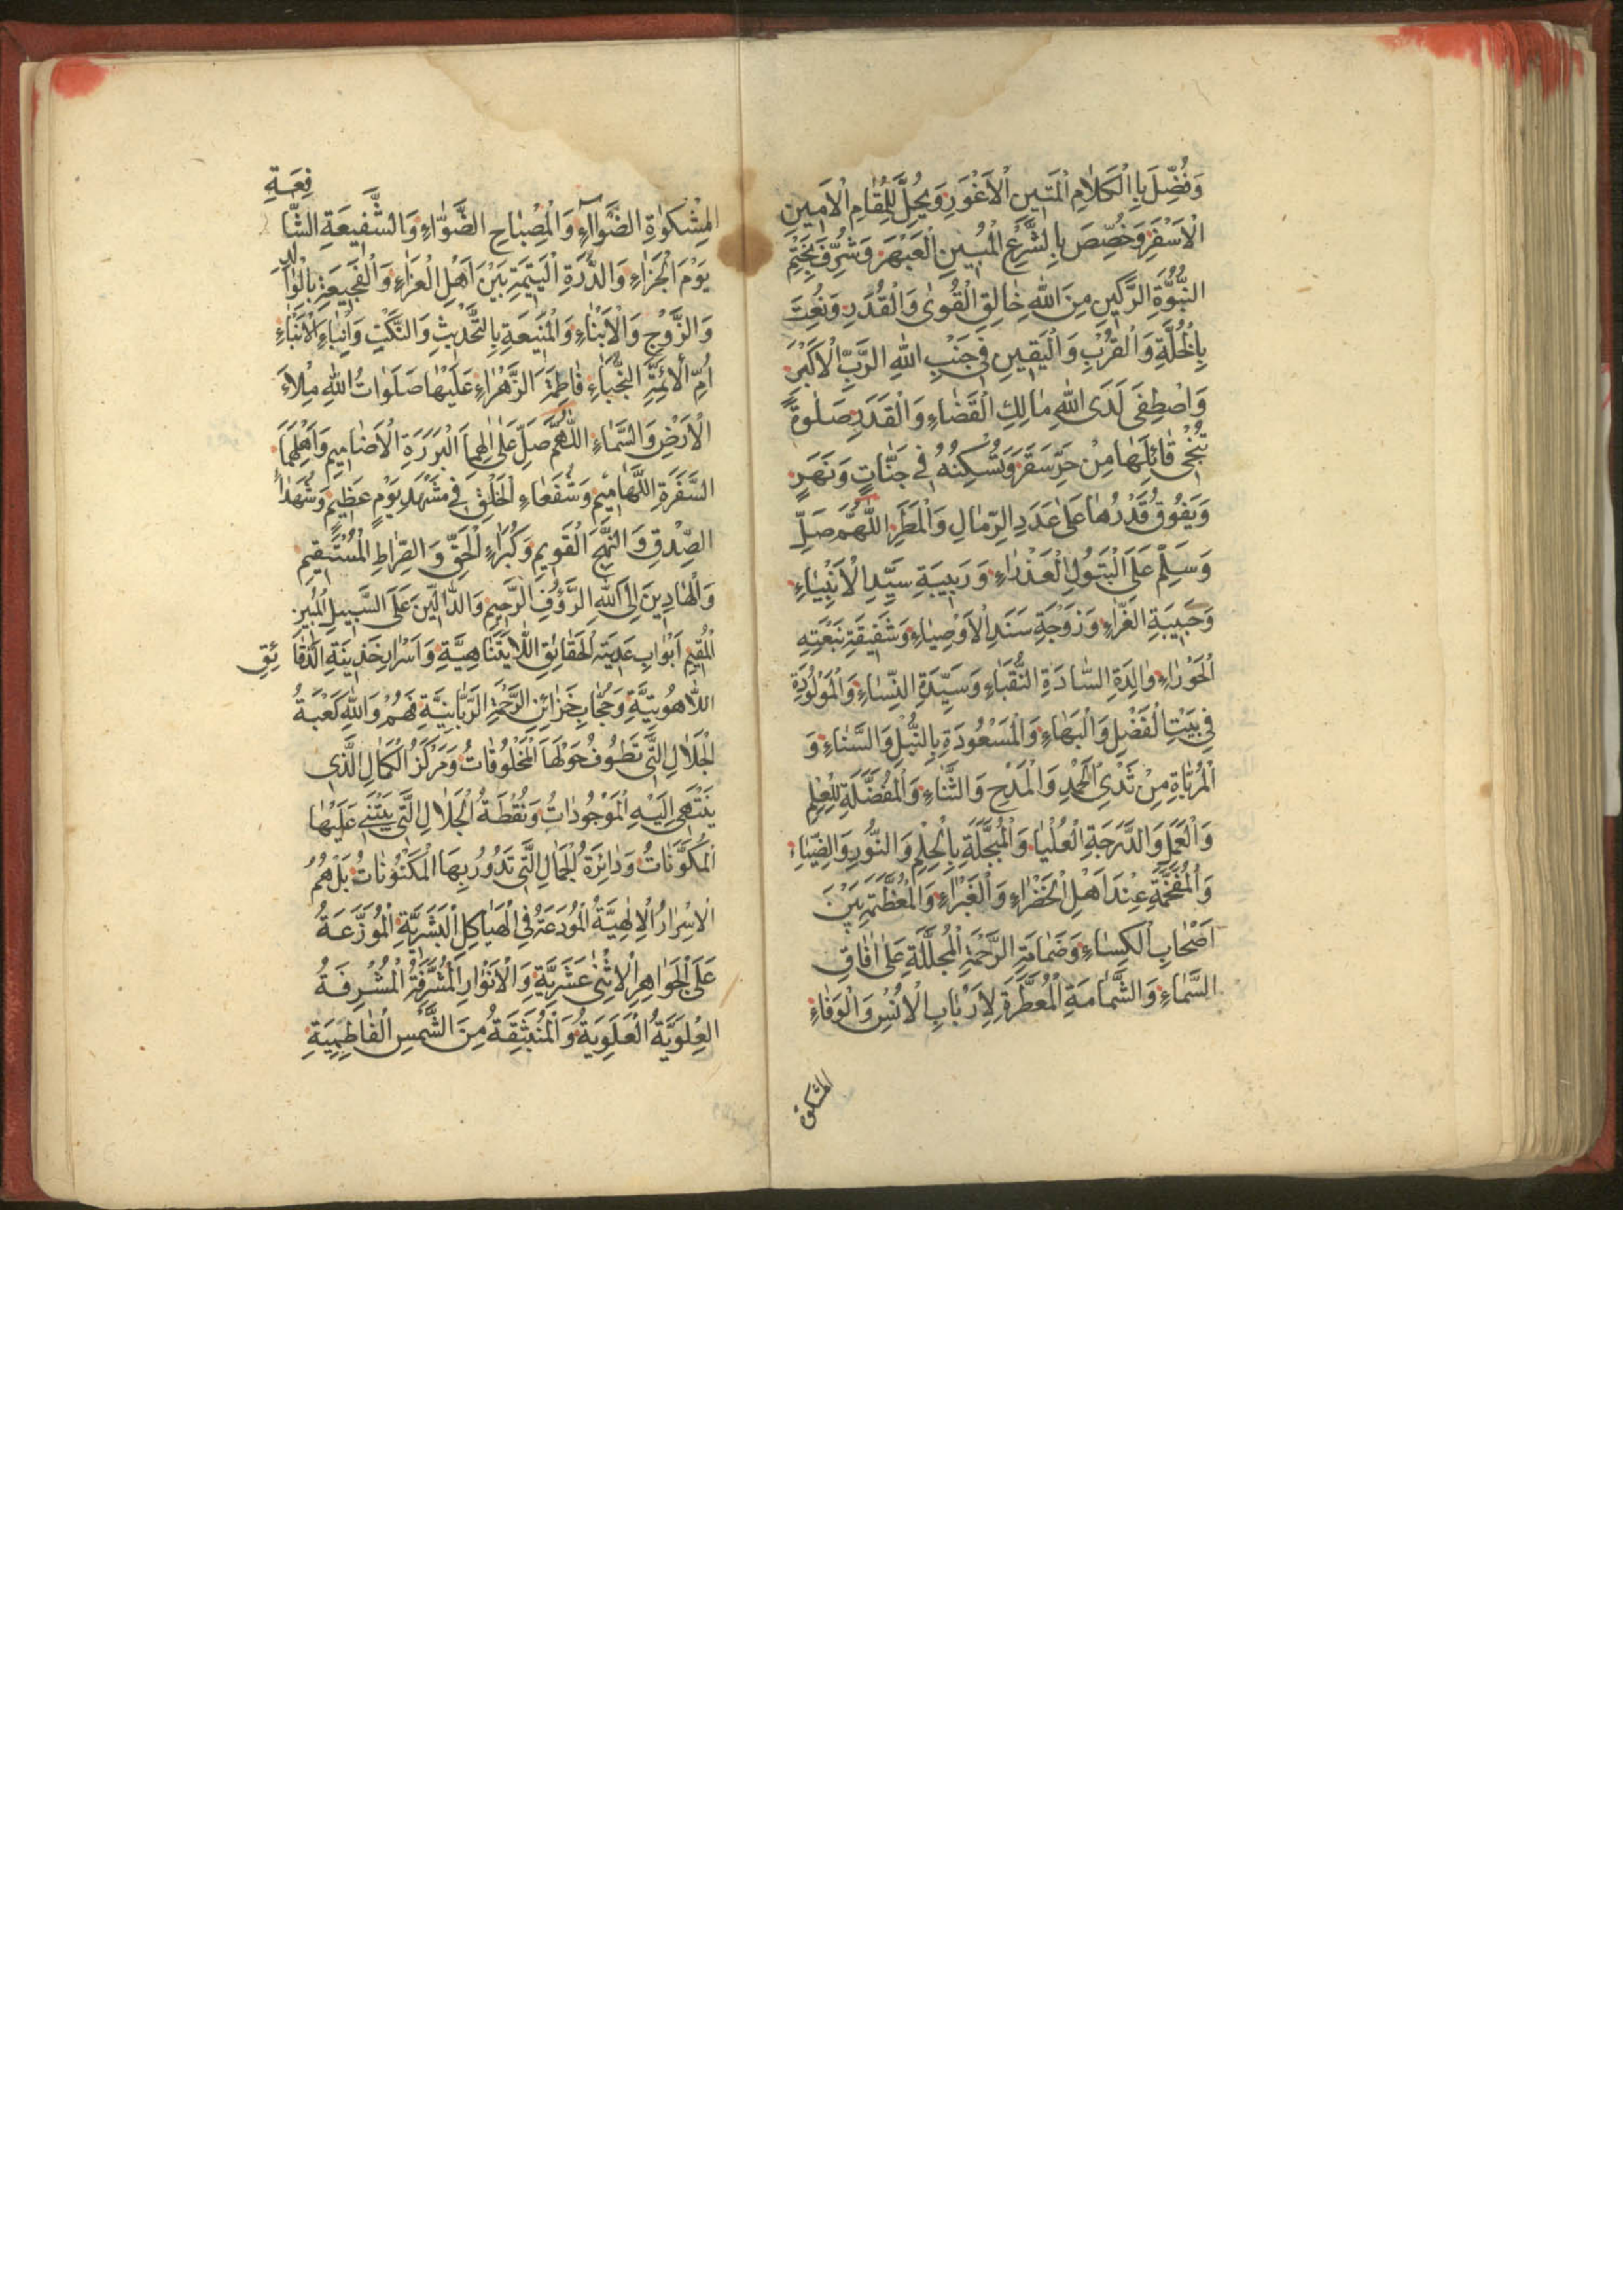 وَفُضِّلَ بِالْكَلَامِ الْمَتِينِ الْأَغْوَرِ وَيُحِلَّ لِلْمَقَامِ الْأَمِينِ
الْأَسْفَرِ وَخُصِّصَ بِالشَّرْعِ الْمُبِينِ الْعَبْهَرِ وَشُرِّفَ بِخَتْمِ
النُّبُوَّةِ الرَّكِينِ مِنَ اللهِ خَالِقِ الْقُوىٰ وَالْقُدَرِ وَنُعِتَ
بِالْخُلَّةِ وَالْقُرْبِ وَالْيَقِينِ فِي جَنْبِ اللهِ الرَّبِّ الْأَكْبَرِ
وَاصْطُفِيَ لَدَى اللهِ مَالِكِ الْقَضَاءِ وَالْقَدَرِ صَلٰوةً
تُنْجِي قَائِلَهَا مِنْ حَرِّ سَقَرَ وَتُسْكِنُهُ فِي جَنَّاتٍ وَنَهَرٍ
وَيَفُوقُ قَدْرُهَا عَلَىٰ عَدَدِ الرِّمَالِ وَالْمَطَرِ اللّٰهُمَّ صَلِّ
وَسَلِّمْ عَلَى الْبَتُولِ الْعَذْرَاءِ وَرَبِيبَةِ سَيِّدِ الْأَنْبِيَاءِ
وَحَبِيبَةِ الْغَرَّاءِ وَزَوْجَةِ سَنَدِ الْأَوْصِيَاءِ وَشَفِيقَةِ نَبْعَتِهِ
الْحَوْرَاءِ وَالِدَةِ السَّادَةِ النُّقَبَاءِ وَسَيِّدَةِ النِّسَاءِ وَالْمَوْلُودَةِ
فِي بَيْتِ الْفَضْلِ وَالْبَهَاءِ وَالْمَسْعُودَةِ بِالنُّبْلِ وَالسَّنَاءِ وَ
الْمُرَبَّاةِ مِنْ ثَدْيِ الْحَمْدِ وَالْمَدْحِ وَالثَّنَاءِ وَالْمُفَضَّلَةِ بِالْعِلْمِ
وَالْعَمَلِ وَالدَّرَجَةِ الْعُلْيَا وَالْمُبَجَّلَةِ بِالْحِلْمِ وَالنُّورِ وَالضِّيَاءِ
وَالْمُفَخَّمَةِ عِنْدَ أَهْلِ الْخَضْرَاءِ وَالْغَبْرَاءِ وَالْمُعَظَّمَةِ بَيْنَ
أَصْحَابِ الْكِسَاءِ وَضَمَامَةِ الرَّحْمَةِ الْمُجَلَّلَةِ عَلَىٰ آفَاقِ
السَّمَاءِ وَالشَّمَامَةِ الْمُعَطَّرَةِ لِأَرْبَابِ الْأُنْسِ وَالْوَفَاءِ
المشكوة
الْمِشْكٰوةِ الضَّوَّاءِ وَالْمِصْبَاحِ الضَّوَّاءِ وَالشَّفِيعَةِ الشَّافِعَةِ
يَوْمَ الْجَزَاءِ وَالدُّرَّةِ الْيَتِيمَةِ بَيْنَ أَهْلِ الْعَزَاءِ وَالْفَجِيعَةِ بِالْوَالِدِ
وَالزَّوْجِ وَالْأَبْنَاءِ وَالْمَنِيعَةِ بِالتَّحْدِيثِ وَالنَّكْتِ وَإِنْبَاءِ الْأَنْبَاءِ
أُمِّ الْأَئِمَّةِ النُّجَبَاءِ فَاطِمَةَ الزَّهْرَاءِ عَلَيْهَا صَلَوَاتُ اللهِ مِلَاءَ
الْأَرْضِ وَالسَّمَاءِ اللّٰهُمَّ صَلِّ عَلَىٰ اٰلِهِمَا الْبَرَرَةِ الْأَصَامِيمِ وَأَهْلِهِمَا
السَّفَرَةِ اللَّهَامِيمِ وَشُفَعَاءِ الْخَلْقِ فِي مَشْهَدِ يَوْمٍ عَظِيمٍ وَشُهَدَاءِ
الصِّدْقِ وَالنَّهْجِ الْقَوِيمِ وَكُبَرَاءِ الْحَقِّ وَالصِّرَاطِ الْمُسْتَقِيمِ
وَالْهَادِينَ إِلَى اللهِ الرَّؤُفِ الرَّحِيمِ وَالدَّالِّينَ عَلَى السَّبِيلِ الْمُبِينِ
الْمُقِيمِ أَبْوَابِ مَدِينَةِ الْحَقَائِقِ اللَّايَتَنَاهِيَّةِ وَأَسْرَارِ خَزِينَةِ الدَّقَائِقِ
اللَّاهُوتِيَّةِ وَحُجَّابِ خَزَائِنِ الرَّحْمَةِ الرَّبَّانِيَّةِ فَهُمْ وَاللهِ كَعْبَةُ
الْجَلَالِ الَّتِي تَطُوفُ حَوْلَهَا الْمَخْلُوقَاتُ وَمَرْكَزُ الْكَمَالِ الَّذِي
يَنْتَهِي إِلَيْهِ الْمَوْجُودَاتُ وَنُقْطَةُ الْجَلَالِ الَّتِي يَبْتَنِي عَلَيْهَا
الْمُكَوَّنَاتُ وَدَائِرَةُ الْجَمَالِ الَّتِي تَدُورُ بِهَا الْمَكْنُونَاتُ بَلْ هُمُ
الْأَسْرَارُ الْإِلٰهِيَّةُ الْمُودَعَةُ فِي الْهَيَاكِلِ الْبَشَرِيَّةِ الْمُوَزَّعَةُ
عَلَى الْجَوَاهِرِ الْاِثْنَىٰ عَشَرِيَّةِ وَالْأَنْوَارِ الْمُشَرَّفَةُ الْمُشْرِفَةُ
الْعُلْوِيَّةُ الْعَلَوِيَةُ وَالْمُنْبَثِقَةُ مِنَ الشَّمْسِ الْفَاطِمِيَةِ